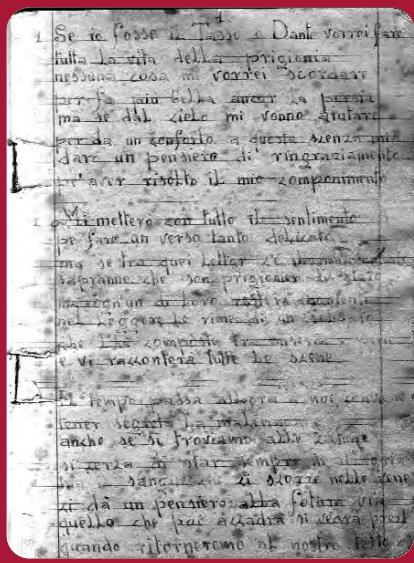 1
1 Se io fosse il Tasso o Dante vorrei fare
tutta la vita della prigionia
nessuna cosa mi vorrei scordare
per fa più bella ancor la poesia
ma se dal cielo mi vonno aiutare
per da un conforto a questa scenza mia
dare un pensiero di ringraziamento
pe' aver risolto il mio componimento
Mi mettero con tutto il sentimento
pe fare un verso tanto delicato
ma se tra quei lettor c'è
sapranno che son prigionier di stato
ma ogn'un di loro
nel leggere le rime di un
che l'ha composto tra miseria e
e vi racconterà tutte le scene
Il tempo passa a noi
tener segreta la
anche se si troviamo alle
si cerza di star sempre in
il sangue che ci scorre nelle vene
ci dà un pensiero alla fotura via
quello che poi accadrà si vedrà
quando ritorneremo al nostro tetto